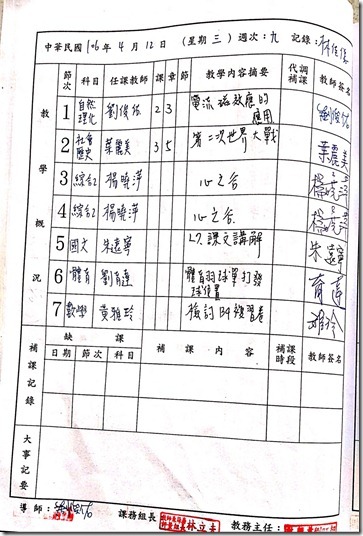 中華民國 106 年 4 月 12 日 （星期 三 ）週次：九 記錄：
教學概況
節次 科目 任課教師 課 章 節 教學內容摘要 代調補課 教師簽名
1 自然理化 劉俊 2 3 電流磁效應的應用
2 社會歷史 葉麗美 3 5 第二次世界大戰 葉麗美
3 綜合2 楊曉萍 心之谷 楊曉萍
4 綜合2 楊曉萍 心之谷 楊曉萍
5 國文 朱遠寧 L7 課文講解 朱遠寧
6 體育 劉育蓮 體育羽球單打發球位置 育蓮
7 數學 黃雅玲 檢討B4複習卷 雅玲
補課記錄
缺課 補課內容 補課時段 教師簽名
日期 節次 科目
大事記要
導師： 課務組長 林立 教務主任：